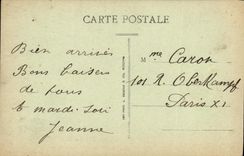 CARTE POSTALE
Bien arrivés
Bons baisers
de tous
à mardi soir
Jeanne
Mme Caron
101 R. Oberkampf
Paris XI